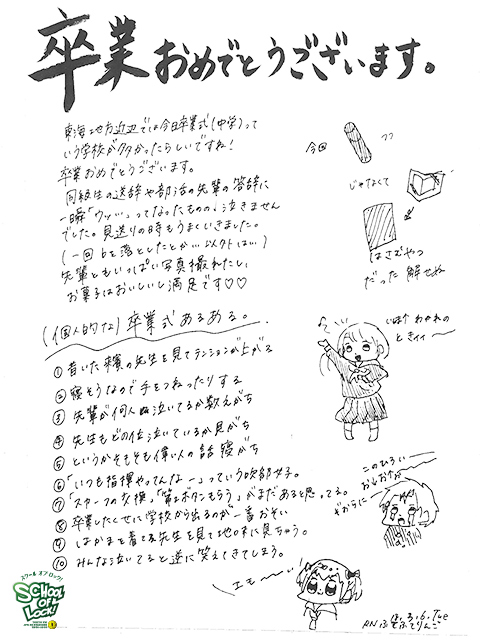 卒業おめでとうございます。
東海地方近辺では今日卒業式(中学)って
いう学校が多かったらしいですね!
卒業おめでとうございます。
同級生の送辞や部活の先輩の答辞に
一瞬「ウッ…」ってなったものの、泣きません
でした。見送りの時もうまくいきました。
(一回 を落としたとか…以外はい)
先輩ともいっぱい写真撮れたし、
お菓子はおいしいし満足です♡♡
今回
じゃなくて
はさむやつ
だった 解せぬ
(個人的な)卒業式あるある。
① 着いた来賓の先生を見てテンションが上がる
② 寝そうなので手をつねったりする
③ 先輩が何人泣いてるか数えがち
④ 先生もどの位泣いているか見がち
⑤ というかそもそも偉い人の話寝がち
⑥「いつも指揮やってんなー」っていう吹部女子。
⑦「スカーフの交換」「第二ボタンもらう」がまだあると思ってる。
⑧ 卒業したくせに学校から出るのが一番おそい
⑨ はかまと着てる先生を見て地味に見ちゃう。
⑩ みんな泣いてると逆に笑えてきてしまう。
いまー わかれの
ときィィ 〜
このひろい
おおぞらに
エモ〜〜い!
スクール オブ ロック!
SCHOOL OF LOCK!
3.6.Tue
RN
りんご